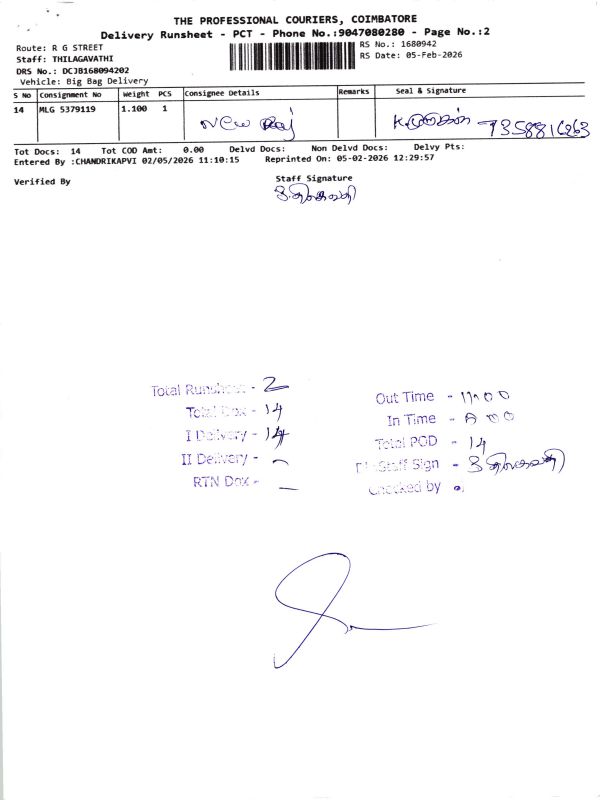 THE PROFESSIONAL COURIERS, COIMBATORE
Delivery Runsheet - PCT - Phone No.:9047080280 - Page No.:2
Route: R G STREET
RS No.: 1680942
Staff: THILAGAVATHI
RS Date: 05-Feb-2026
DRS No.: DCJB168094202
Vehicle: Big Bag Delivery
S No Consignment No Weight PCS Consignee Details Remarks Seal & Signature
14 MLG 5379119 1.100 1 New Raj 7358816263
Tot Docs: 14 Tot COD Amt: 0.00 Delvd Docs: Non Delvd Docs: Delvy Pts:
Entered By :CHANDRIKAPVI 02/05/2026 11:10:15 Reprinted On: 05-02-2026 12:29:57
Verified By
Staff Signature
Total Runsheet - 2
Total Dox - 14
I Delivery - 14
II Delivery -
RTN Dox - –
Out Time - 11.00
In Time -
Total POD - 14
Staff Sign -
Checked by